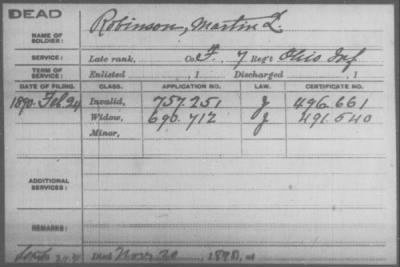 DEAD
NAME OF SOLDIER: Robinson, Martin L.
SERVICE: Late rank, Co. F, 7 Regt Ohio Inf
TERM OF SERVICE: Enlisted , 1 Discharged , 1
DATE OF FILING. CLASS. APPLICATION NO. LAW. CERTIFICATE NO.
1890 Feb. 24 Invalid, 757.251 J 496.661
Widow, 690.712 J 491.540
Minor,
ADDITIONAL SERVICES:
REMARKS:
Died Nov. 20, 1890, at